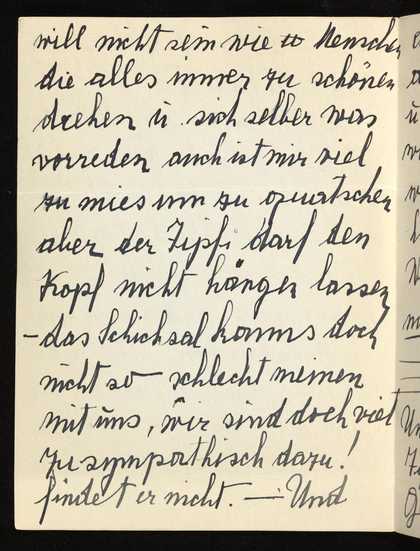 will nicht sein wie so Menschen
die alles immer zu schönen
drehen ü. sich selber was
vorreden auch ist mir viel
zu mies um zu quatschen
aber der Zipfi darf den
Kopf nicht hängen lassen
– das Schicksal kanns doch
nicht so schlecht meinen
mit uns, wir sind doch viel
zu sympathisch dazu!
findet er nicht. – Und